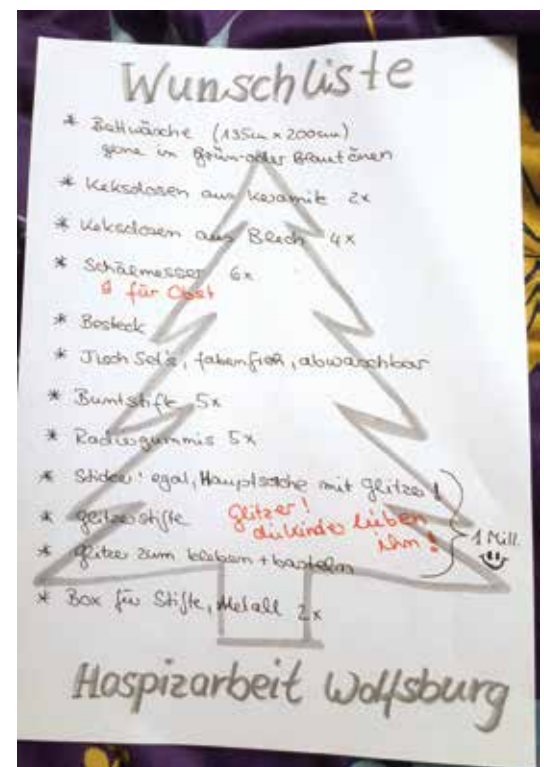 Wunschliste
* Bettwäsche (135cm x 200cm)
gerne in Grün- oder Brautönen
* Keksdosen aus Keramik 2x
* Keksdosen aus Blech 4x
* Schälmesser 6x
für Obst
* Besteck
* Tisch Set's, fabenfroh, abwaschbar
* Buntstifte 5x
* Radiergummis 5x
* Sticker! egal, Hauptsache mit Glitzer!
* Glitzerstifte
Glitzer!
die Kinder lieben
ihn!
* Glitzer zum kleben + basteln
1 Mill.
* Box für Stifte, Metall 2x
Hospizarbeit Wolfsburg